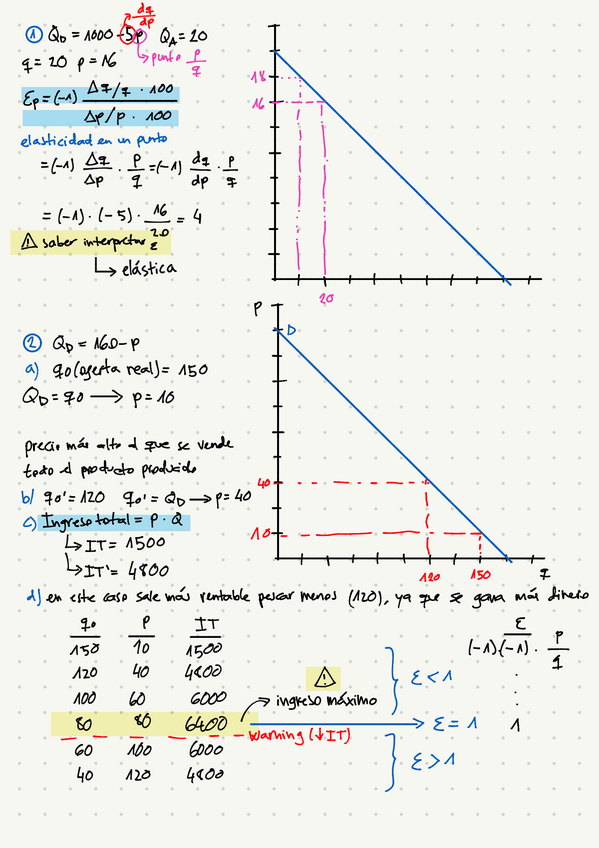 dq/dp
① Q_D = 1000 - 5p   Q_A = 20
punto p/q
q = 20   p = 16
Ep = (-1) Δq/q · 100 / Δp/p · 100
elasticidad en un punto
= (-1) Δq/Δp · p/q = (-1) dq/dp · p/q
= (-1) · (-5) · 16/20 = 4
⚠ saber interpretar ε
↳ elástica
18
16
20
② Q_D = 160 - P
a) q0 (oferta real) = 150
Q_D = q0 → p = 10
precio más alto al que se vende
todo el producto producido
b) q0' = 120   q0' = Q_D → p = 40
c) Ingreso total = P · Q
↳ IT = 1500
↳ IT' = 4800
P
D
40
10
120   150   q
d) en este caso sale más rentable pescar menos (120), ya que se gana más dinero
q0   P   IT   ε
150   10   1500   (-1)(-1) · P/q
120   40   4800   ε < 1
⚠
100   60   6000   ingreso máximo
80   80   6400   ε = 1   1
Warning (↓IT)
60   100   6000   ε > 1
40   120   4800